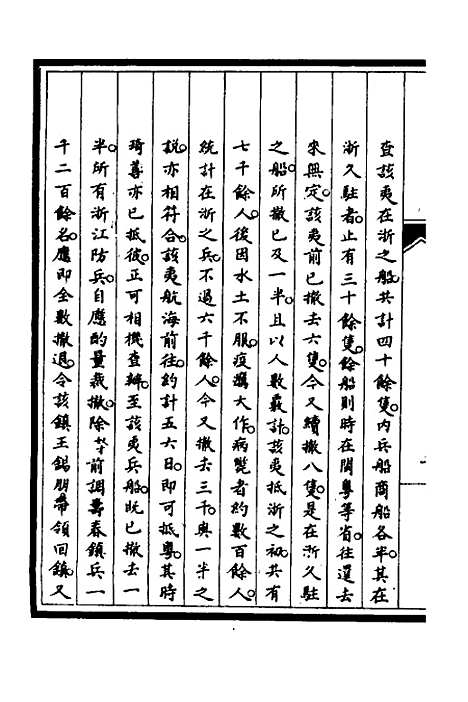 查該夷在浙之船。共計四十餘隻。内兵船商船各半。其在
浙久駐者。止有三十餘隻。餘船則時在閩粵等省。往還去
來無定。該夷前已撤去六隻。今又續撤八隻。是在浙久駐
之船。所撤已及一半。且以人數覈計。該夷抵浙之初。共有
七千餘人。後因水土不服。疫癘大作。病斃者約數百餘人。
統計在浙之兵。不過六千餘人。今又撤去三千。與一半之
說。亦相符合。該夷航海前往。約計五六日。即可抵粵。其時
琦善亦已抵彼。正可相機查辦。至該夷兵船。既已撤去一
半。所有浙江防兵。自應酌量裁撤。除前調壽春鎮兵一
千二百餘名。應即全數撤退。令該鎮王錫朋帶領回鎮。又